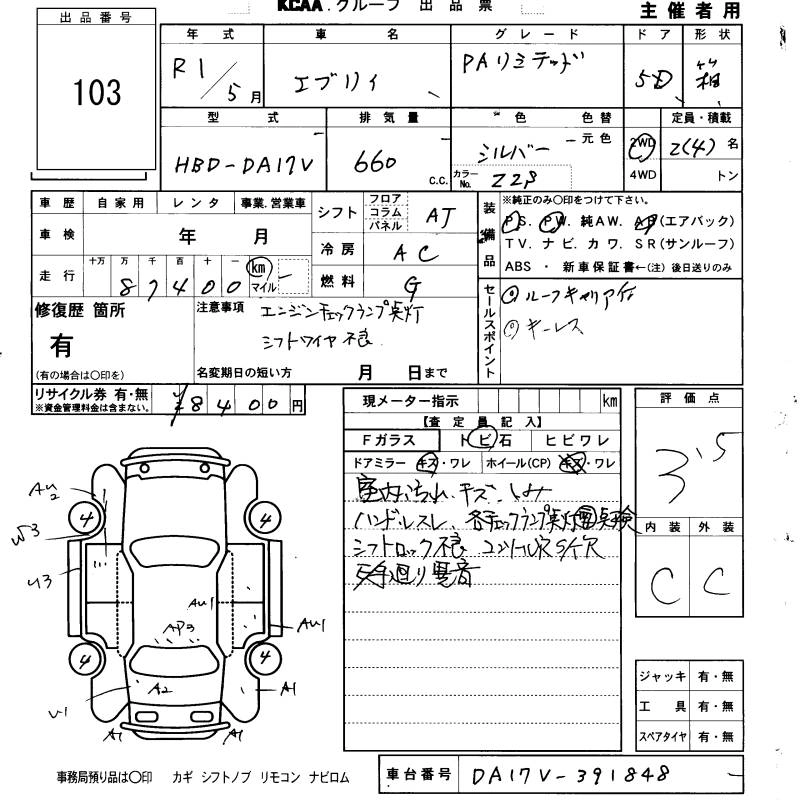 KCAA.グループ 出品票
主催者用
出品番号
103
年式 車名 グレード ドア 形状
R1/5月 エブリイ PAリミテッド 5D 箱
型式 排気量 色 色替 定員・積載
HBD-DA17V 660 C.C. シルバー 元色 2WD 2(4)名
カラーNo. Z2S 4WD トン
車歴 自家用 レンタ 事業.営業車
車検 年 月
走行 十万 万 千 百 十 一
87400 km マイル
シフト フロア コラム パネル AT
冷房 AC
燃料 G
装備品
※純正のみ○印をつけて下さい。
PS. PW. 純AW. AB(エアバック)
TV. ナビ. カワ. SR(サンルーフ)
ABS ・ 新車保証書←(注)後日送りのみ
セールスポイント
○ルーフキャリア付
○キーレス
修復歴 箇所
有
(有の場合は○印を)
注意事項 エンジンチェックランプ点灯
シフトワイヤ不良
名変期日の短い方 月 日まで
リサイクル券 有・無
※資金管理料金は含まない。
8400円
現メーター指示 km
【査定員記入】
Fガラス トビ石 ヒビワレ
ドアミラー キズ・ワレ ホイール(CP) キズ・ワレ
室内汚れ、キズ、しみ
ハンドルスレ、各チェックランプ点灯 点検
シフトロック不良
廻り異音
評価点
3.5
内装 外装
C C
ジャッキ 有・無
工具 有・無
スペアタイヤ 有・無
AU2
W3
U3
U1
4 4
4 4
AU1
AP3
A2
AU1
A1
A1
A1
事務局預り品は○印 カギ シフトノブ リモコン ナビロム
車台番号 DA17V-391848